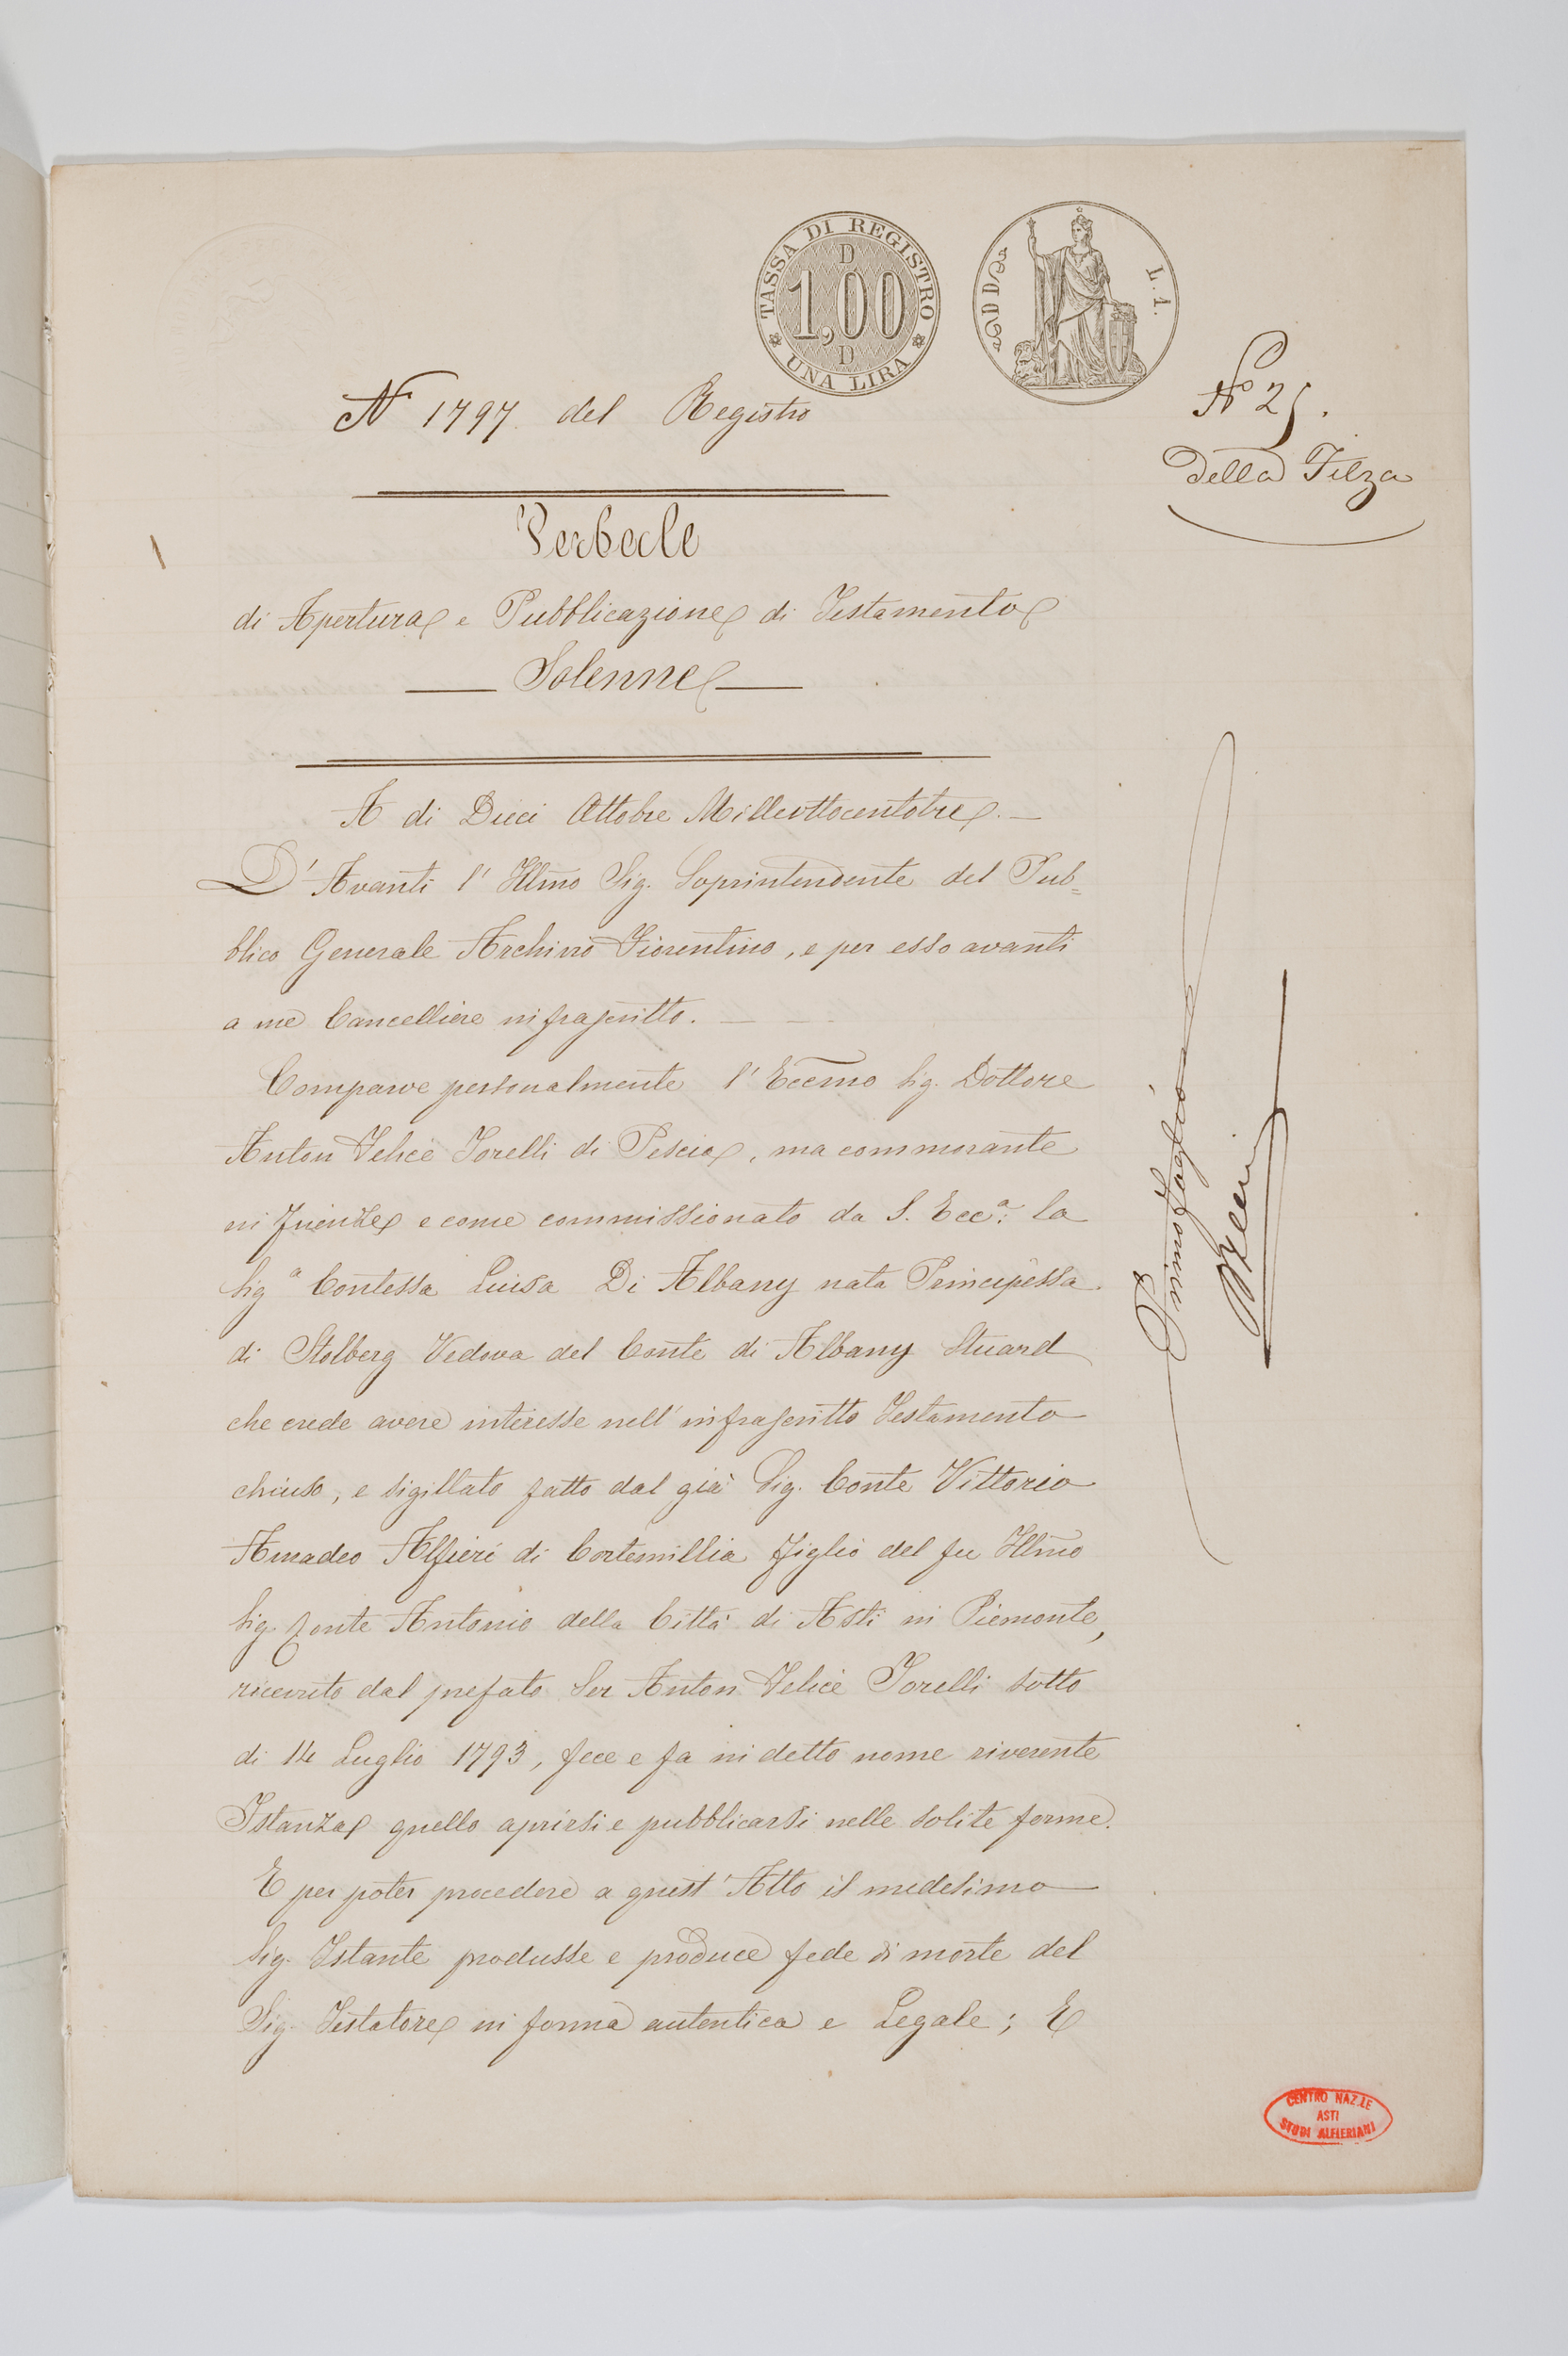 TASSA DI REGISTRO
D
1,00
D
UNA LIRA
D D
L. 1.
N 1797 del Registro
N° 25.
della Filza
Verbale
di Apertura e Pubblicazione di Testamento
Solenne
A di Dieci Ottobre Milleottocentotre. —
D'Avanti l'Illmo Sig. Soprintendente del Pub=
blico Generale Archivio Fiorentino, e per esso avanti
a me Cancelliere infrascritto. — — —
Comparve personalmente l'Eccmo Sig. Dottore
Anton Felice Torelli di Pescia, ma commorante
in Firenze e come commissionato da S. Ecca. la
Sig a Contessa Luisa Di Albany nata Principessa
di Stolberg Vedova del Conte di Albany Stuard
che crede avere interesse nell'infrascritto Testamento
chiuso, e sigillato fatto dal già Sig. Conte Vittorio
Amadeo Alfieri di Cortemillia figlio del fu Illmo
Sig. Conte Antonio della Città di Asti in Piemonte,
ricevuto dal prefato Ser Anton Felice Torelli sotto
di 14 Luglio 1793, fece e fa in detto nome riverente
Istanza quello aprirsi e pubblicarsi nelle solite forme.
E per poter procedere a quest'Atto il medesimo
Sig. Istante produsse e produce fede di morte del
Sig. Testatore in forma autentica e Legale; E
Primo foglio
CENTRO NAZ.LE
ASTI
STUDI ALFIERIANI